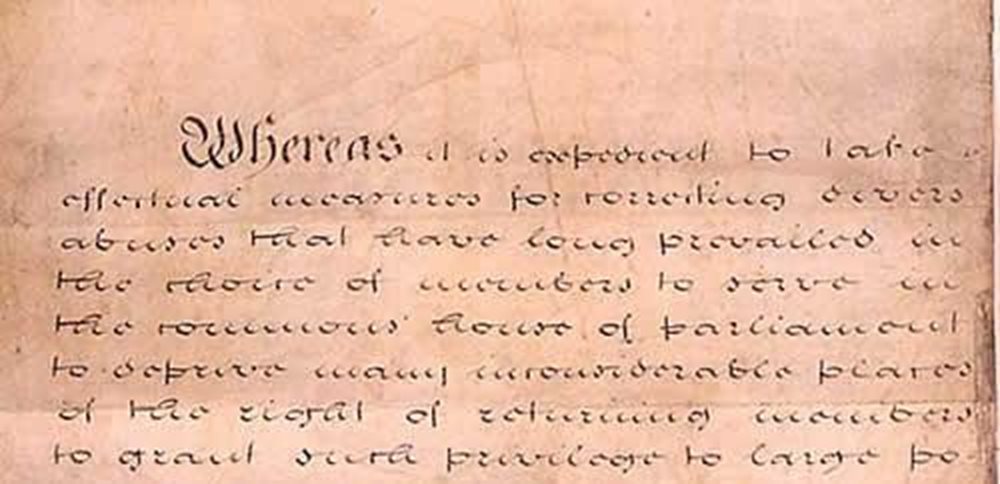 Whereas it is expedient to take
effectual measures for correcting divers
abuses that have long prevailed in
the choice of members to serve in
the commons house of parliament
to deprive many inconsiderable places
of the right of returning members
to grant such privilege to large po-